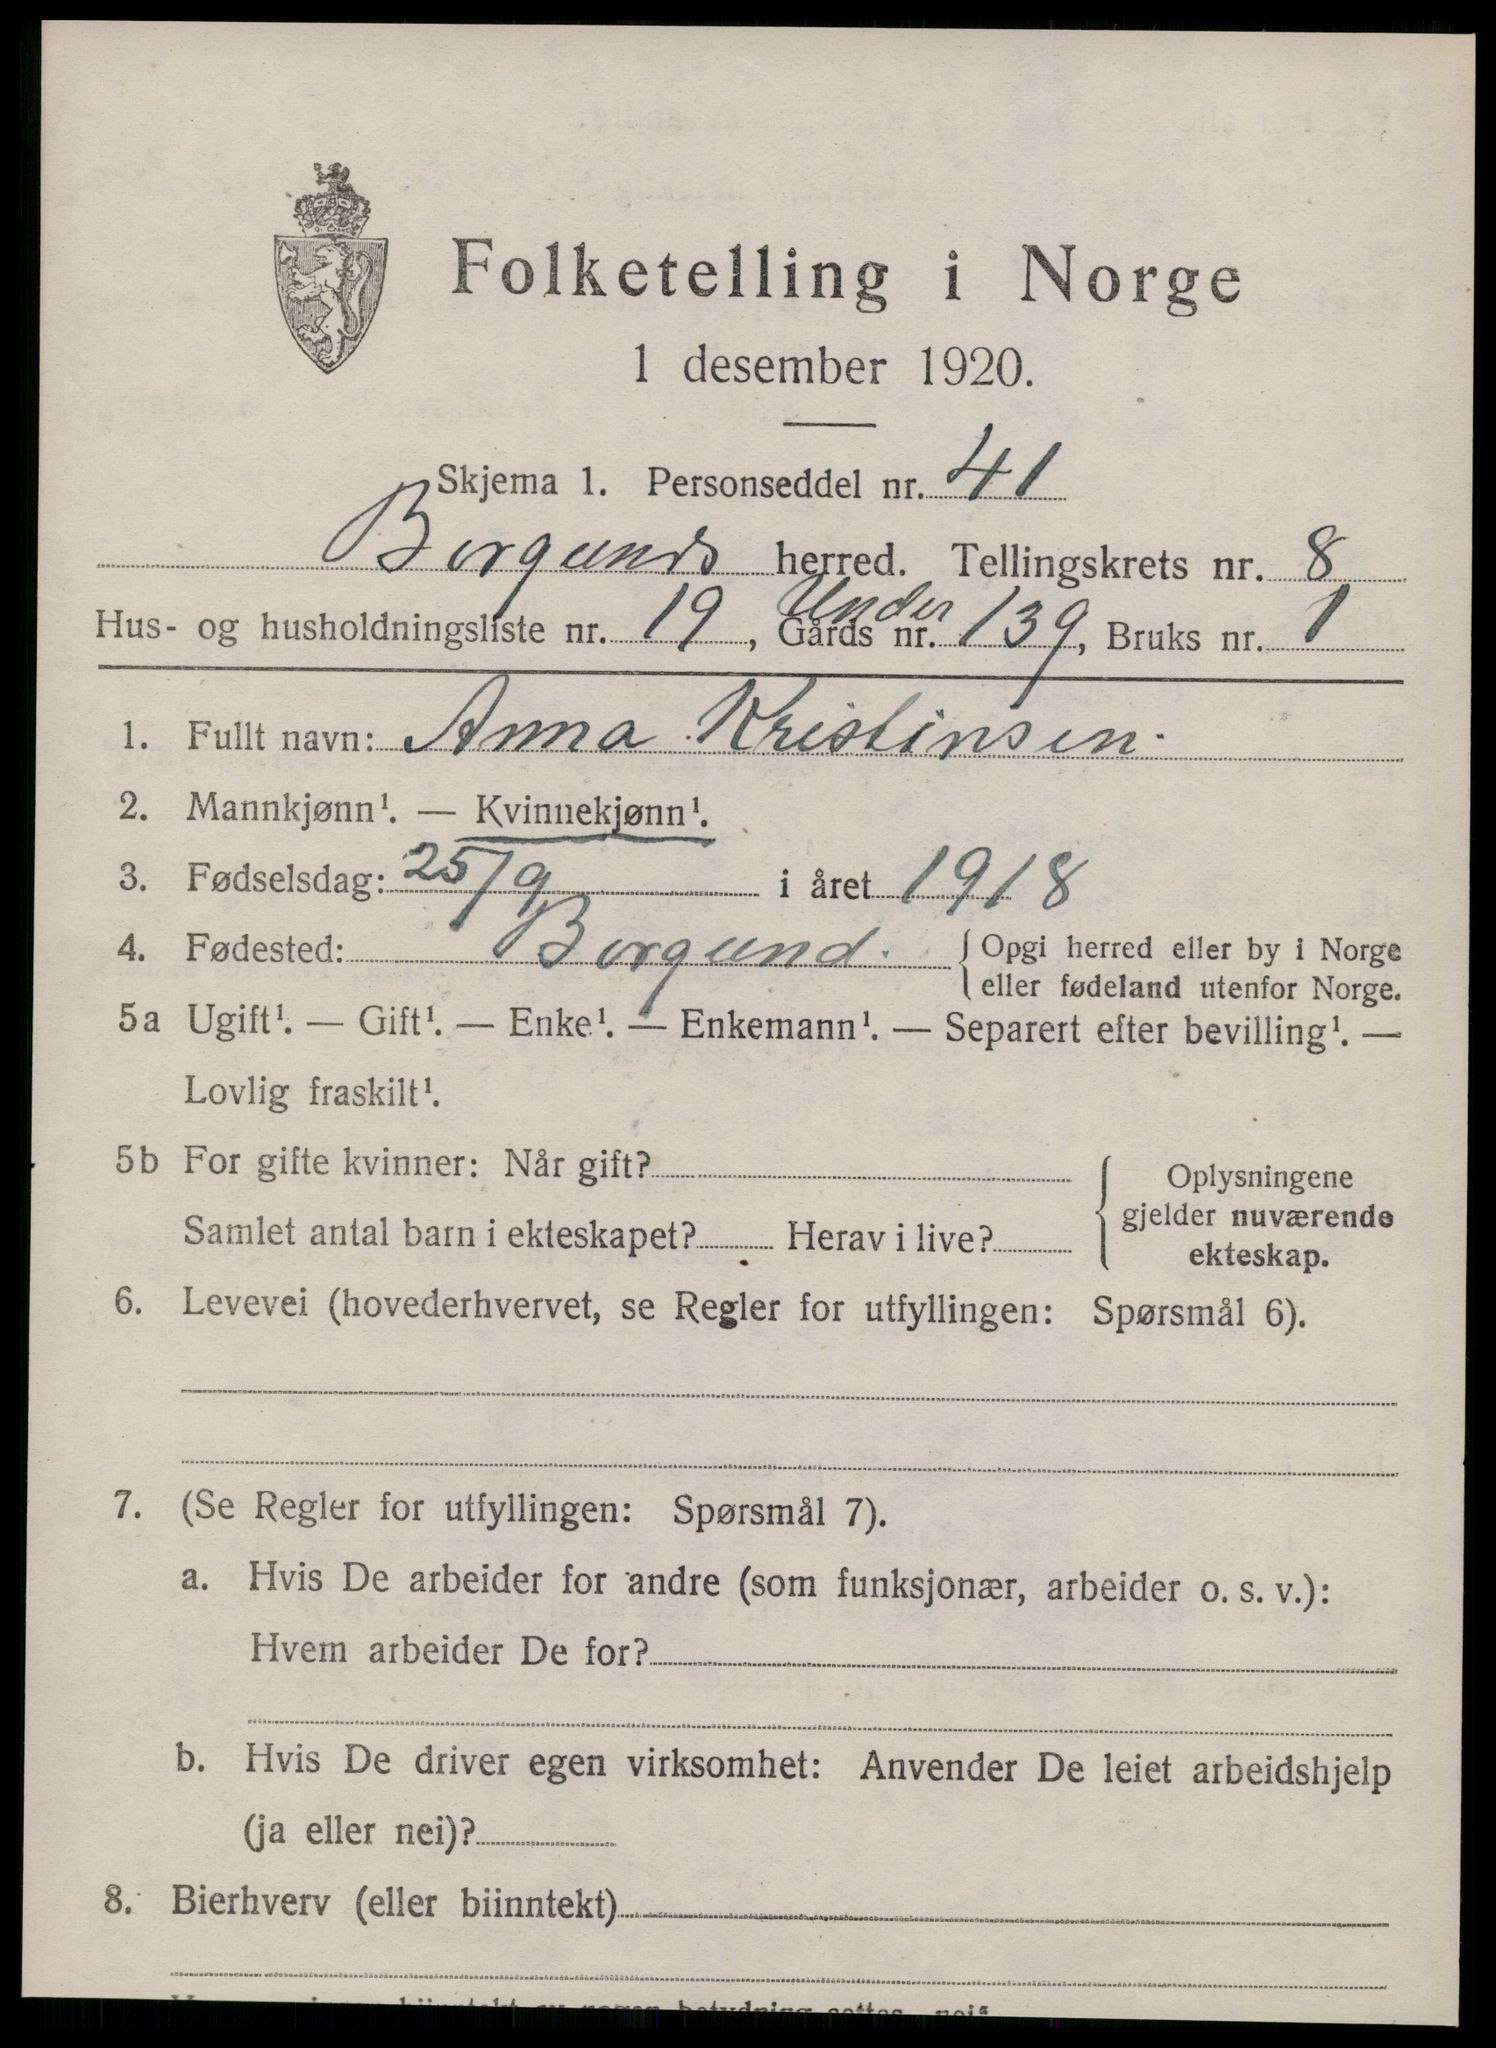 Folketelling i Norge
1 desember 1920.
Skjema 1. Personseddel nr. 41
Borgunds herred. Tellingskrets nr. 8
Hus- og husholdningsliste nr. 19, Under Gårds nr. 139, Bruks nr. 1
1. Fullt navn: Anna Kristinsen.
2. Mannkjønn¹. — Kvinnekjønn¹.
3. Fødselsdag: 25/9 i året 1918
4. Fødested: Borgund. { Opgi herred eller by i Norge
eller fødeland utenfor Norge.
5a Ugift¹. — Gift¹. — Enke¹. — Enkemann¹. — Separert efter bevilling¹. —
Lovlig fraskilt¹.
5b For gifte kvinner: Når gift?
Samlet antal barn i ekteskapet? Herav i live?
Oplysningene
gjelder nuværende
ekteskap.
6. Levevei (hovederhvervet, se Regler for utfyllingen: Spørsmål 6).
7. (Se Regler for utfyllingen: Spørsmål 7).
a. Hvis De arbeider for andre (som funksjonær, arbeider o. s. v.):
Hvem arbeider De for?
b. Hvis De driver egen virksomhet: Anvender De leiet arbeidshjelp
(ja eller nei)?
8. Bierhverv (eller biinntekt)